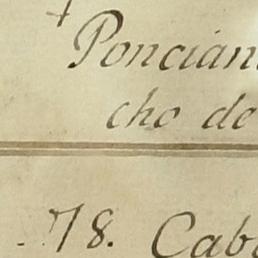 Poncian
cho de
78. Cabo